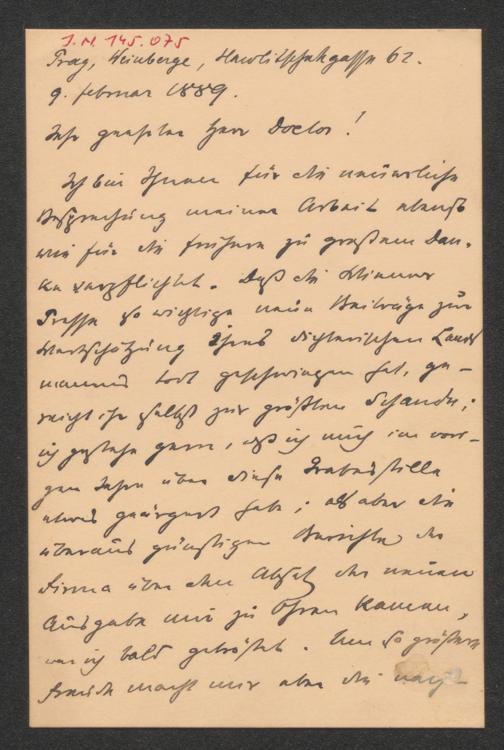 J.N. 145.075
Prag, Weinberge, Hawlitschekgasse 62.
9. Februar 1889.
Sehr geehrter Herr Doctor!
Ich bin Ihnen für die neuerliche
Besprechung meiner Arbeit ebenso
wie für die frühere zu großem Dan-
ke verpflichtet. Daß die Wiener
Presse so wichtige neue Beiträge zur
Wertschätzung ihres dichterischen Lands
mannes tot geschwiegen hat, ge-
reicht ihr selbst zur größten Schande;
ich gestehe gern, daß ich mich im vori-
gen Jahre über diese Grabesstille
etwas geärgert habe; als aber die
überaus günstigen Berichte der
Firma über den Absatz der neuen
Ausgabe mir zu Ohren kamen,
war ich bald getröstet. Um so größere
Freude macht mir aber die nach-